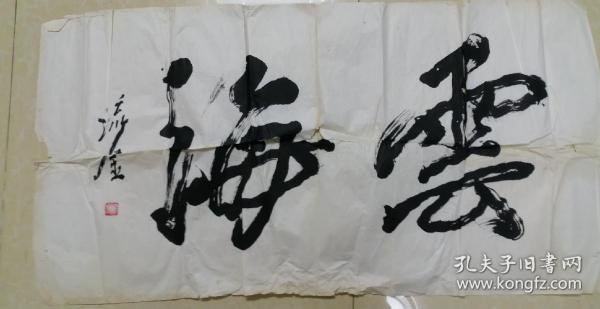 雲海
孔夫子旧書网
www.kongfz.com